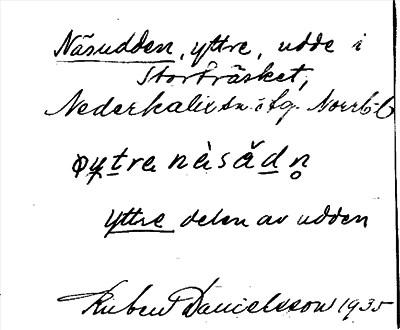 Näsudden, yttre, udde i
Storträsket,
Nederkalix sn o tg. Norrb. l.
yttre delen av udden
Rubert Danielsson 1935